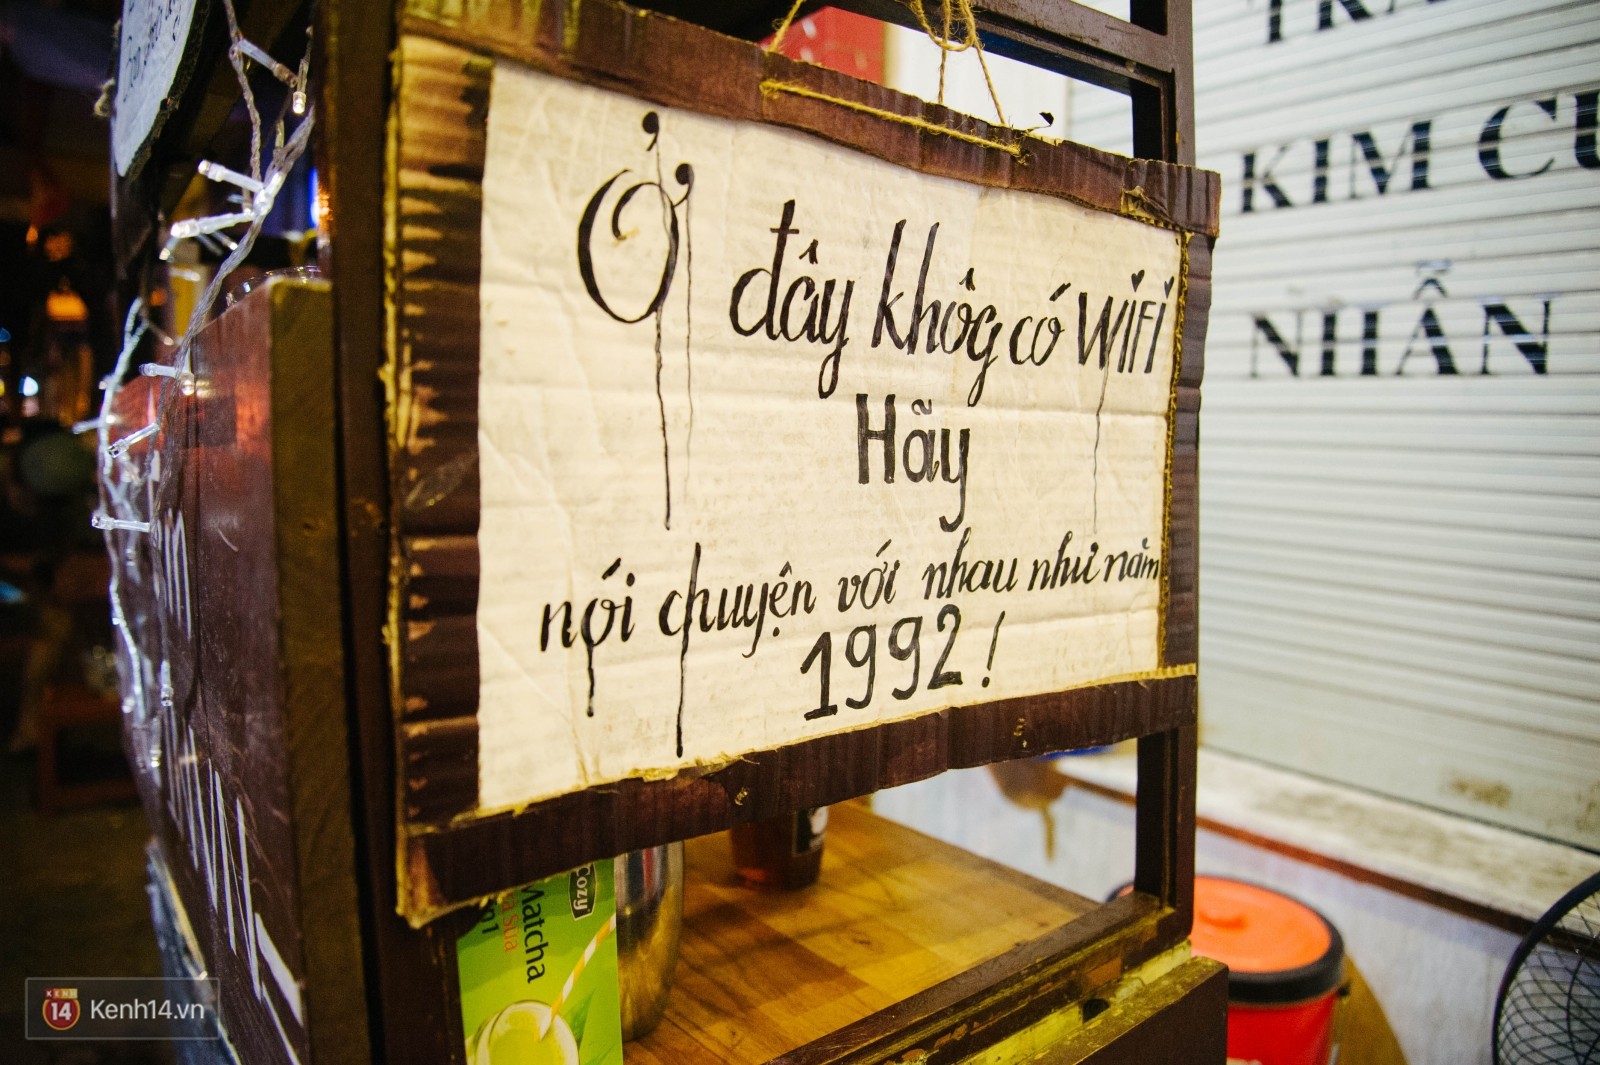 Ở đây khôg có WiFi
Hãy
nói chuyện với nhau như năm
1992!
KIM CƯ
NHÂN
Cozy
Matcha
Sữa
14
Kenh14.vn